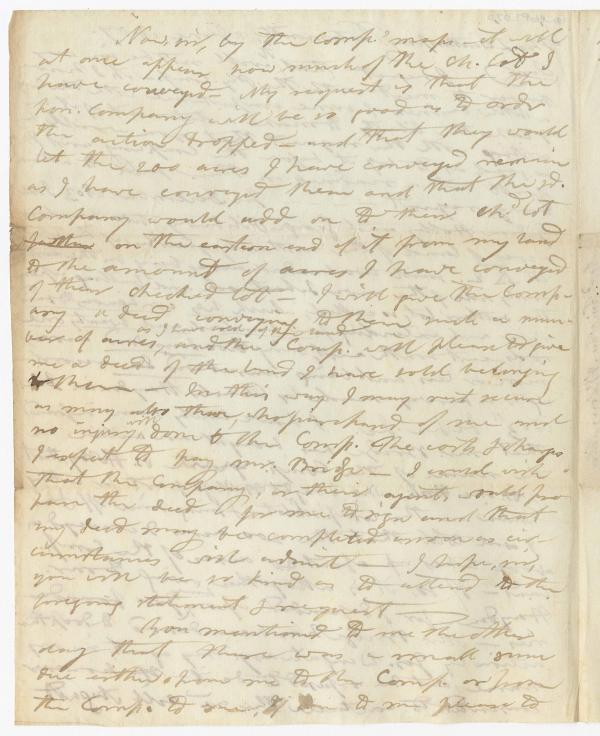 Now, sir, by the Comp.s maps - it will
at once appear how much of the Ch. Lot I
have conveyed - My request is that the
hon. Company will be so good as to order
the action dropped - and that they would
let the 200 acres I have conveyed remain
as I have conveyed them and that the sd.
Company would add on to their Ch.d Lot
on the eastern end of it from my land
to the amount of acres I have conveyed
of their checked lot - I will give the Comp-
any a deed conveying to them such a num-
ber of acres, as I have sold of their land and the Comp. will please to give
me a deed of the land I have sold belonging
to them - In this way I may rest secure
as may also those, who purchased of me and
no injury will be done to the Comp. The costs I
I expect to pay Mr. Bridge - I could wish
that the Company, or their agent, would pre
pare the deed for me to sign and that
my deed may be completed as soon as cir
cumstances will admit - I hope, sir,
you will be so kind as to attend to the
foregoing statement & request
You mentioned to me the other
day that there was a small sum
due either from me to the Comp. or from
the Comp. to me, If due to me please to